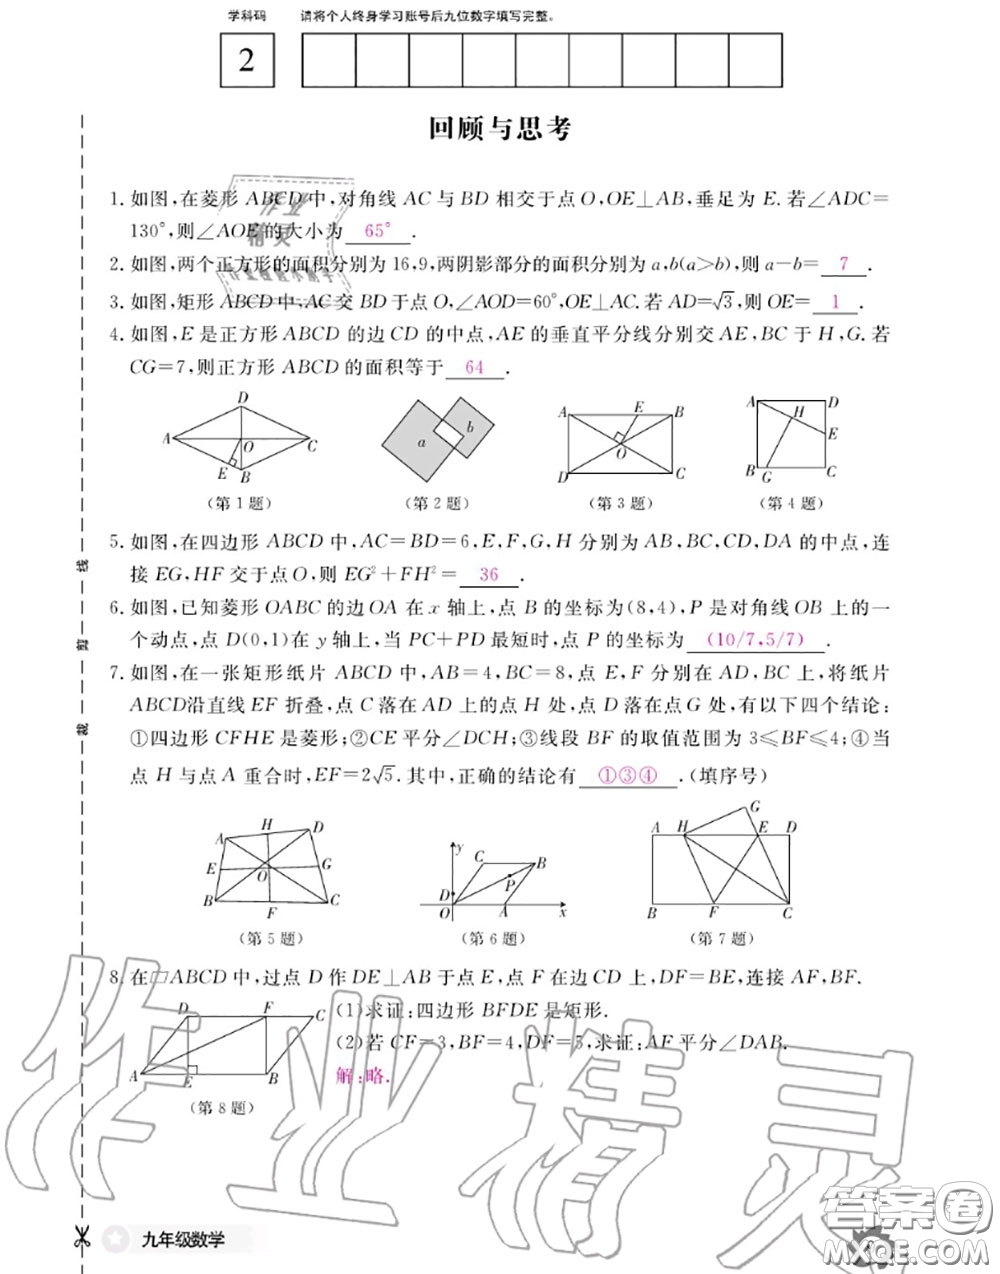 学科码 请将个人终身学习账号后九位数字填写完整。
2
回顾与思考
1. 如图,在菱形 ABCD 中,对角线 AC 与 BD 相交于点 O,OE⊥AB,垂足为 E. 若∠ADC=
130°,则∠AOE 的大小为 65° .
2. 如图,两个正方形的面积分别为 16,9,两阴影部分的面积分别为 a,b(a>b),则 a-b= 7 .
3. 如图,矩形 ABCD 中,AC 交 BD 于点 O,∠AOD=60°,OE⊥AC. 若 AD=√3,则 OE= 1 .
4. 如图,E 是正方形 ABCD 的边 CD 的中点,AE 的垂直平分线分别交 AE,BC 于 H,G. 若
CG=7,则正方形 ABCD 的面积等于 64 .
D A O C E B
a b
A E B O D C
A D H E B G C
(第 1 题) (第 2 题) (第 3 题) (第 4 题)
5. 如图,在四边形 ABCD 中,AC=BD=6,E,F,G,H 分别为 AB,BC,CD,DA 的中点,连
接 EG,HF 交于点 O,则 EG²+FH²= 36 .
6. 如图,已知菱形 OABC 的边 OA 在 x 轴上,点 B 的坐标为(8,4),P 是对角线 OB 上的一
个动点,点 D(0,1)在 y 轴上,当 PC+PD 最短时,点 P 的坐标为 (10/7,5/7) .
7. 如图,在一张矩形纸片 ABCD 中,AB=4,BC=8,点 E,F 分别在 AD,BC 上,将纸片
ABCD沿直线 EF 折叠,点 C 落在 AD 上的点 H 处,点 D 落在点 G 处,有以下四个结论:
①四边形 CFHE 是菱形;②CE 平分∠DCH;③线段 BF 的取值范围为 3≤BF≤4;④当
点 H 与点 A 重合时,EF=2√5. 其中,正确的结论有 ①③④ .(填序号)
H D A E O G B F C
y C B P D O A x
G A H E D B F C
(第 5 题) (第 6 题) (第 7 题)
8. 在□ABCD 中,过点 D 作 DE⊥AB 于点 E,点 F 在边 CD 上,DF=BE,连接 AF,BF.
(1)求证:四边形 BFDE 是矩形.
(2)若 CF=3,BF=4,DF=5,求证:AF 平分∠DAB.
解:略.
D F C A E B
(第 8 题)
线
剪
裁
九年级数学
作业精灵
答案圈
MXQE.COM